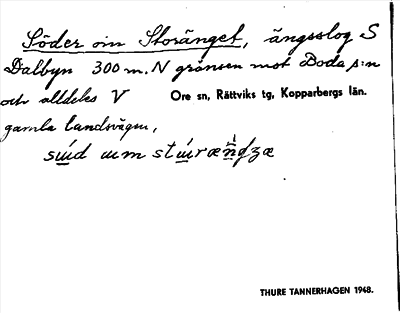 Söder om Storänget, ängsslog S
Dalbyn 300 m. N gränsen mot Boda s:n
och alldeles V Ore sn, Rättviks tg, Kopparbergs län.
gamla landsvägen,
sɯ́d ɯm stɯ́ræñʒæ
THURE TANNERHAGEN 1948.